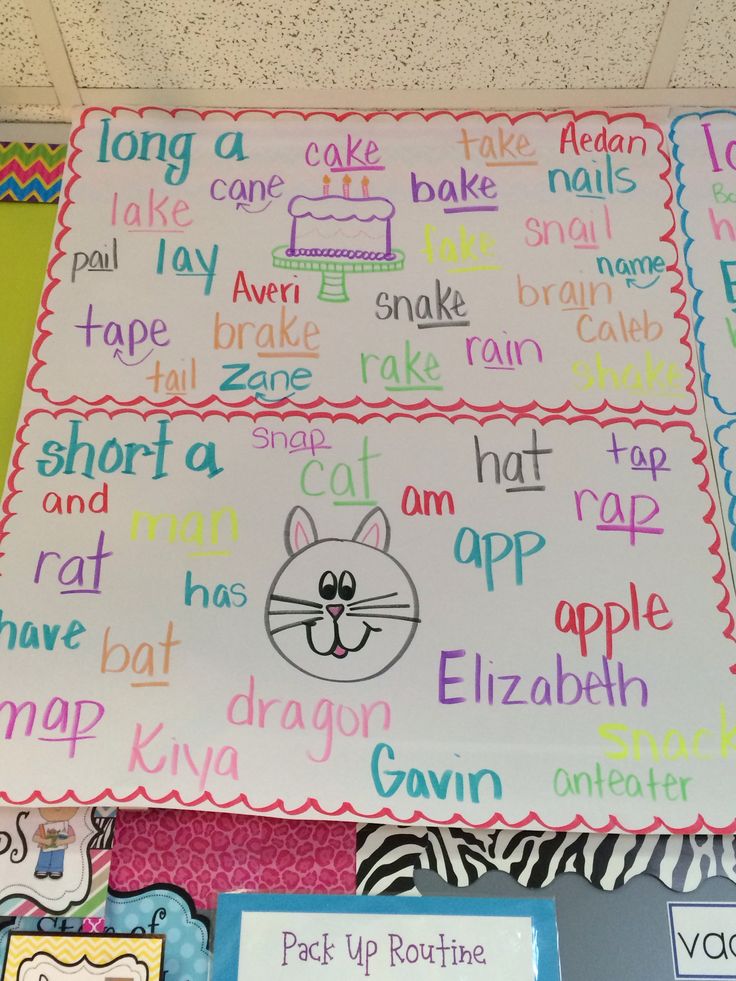 long a
cake
take
Aedan
cane
bake
nails
lake
fake
snail
pail
lay
name
Averi
snake
brain
tape
brake
rain
Caleb
tail
Zane
rake
shake
short a
snap
cat
hat
tap
and
man
am
rap
rat
has
app
apple
have
bat
Elizabeth
map
dragon
Kiya
Gavin
snack
anteater
Pack Up Routine